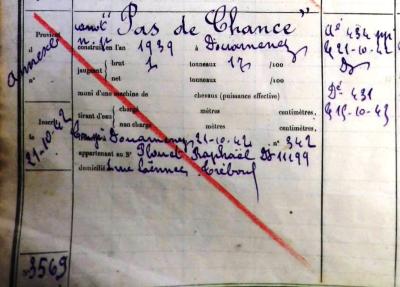 Provient
"
annexe
"
canot "Pas de Chance"
construit en l'an 1939 à Douarnenez
jaugeant brut 1 tonneaux 17 /100
net tonneaux /100
muni d'une machine de chevaux (puissance effective)
tirant d'eau chargé mètres centimètres.
non chargé mètres centimètres.
Inscrit
le
21-10-42
Douarnenez 21-10-42 n° 342
appartenant au Sr Raphaël Dz 11199
domicilié rue Laënnec Tréboul
3569
434
21-10-42
Dz
431
15-10-43